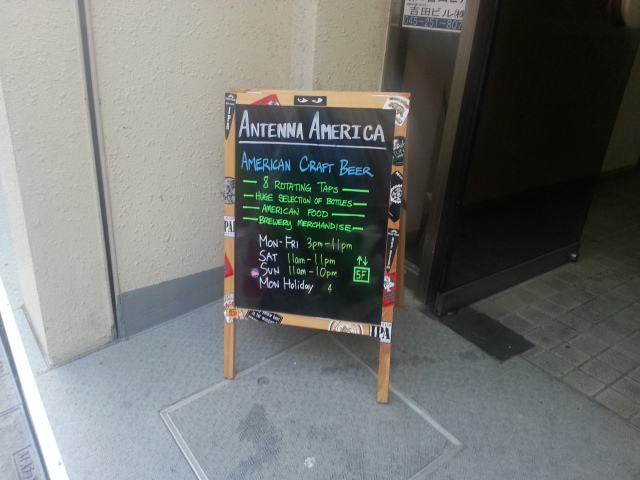 吉田ビル(株
045-251-807
ANTENNA AMERICA
AMERICAN CRAFT BEER
8 ROTATING TAPS
HUGE SELECTION OF BOTTLES
AMERICAN FOOD
BREWERY MERCHANDISE
MON-FRI 3pm-11pm
SAT 11am-11pm
SUN 11am-10pm
MON Holiday
↑↓
5F
IPA